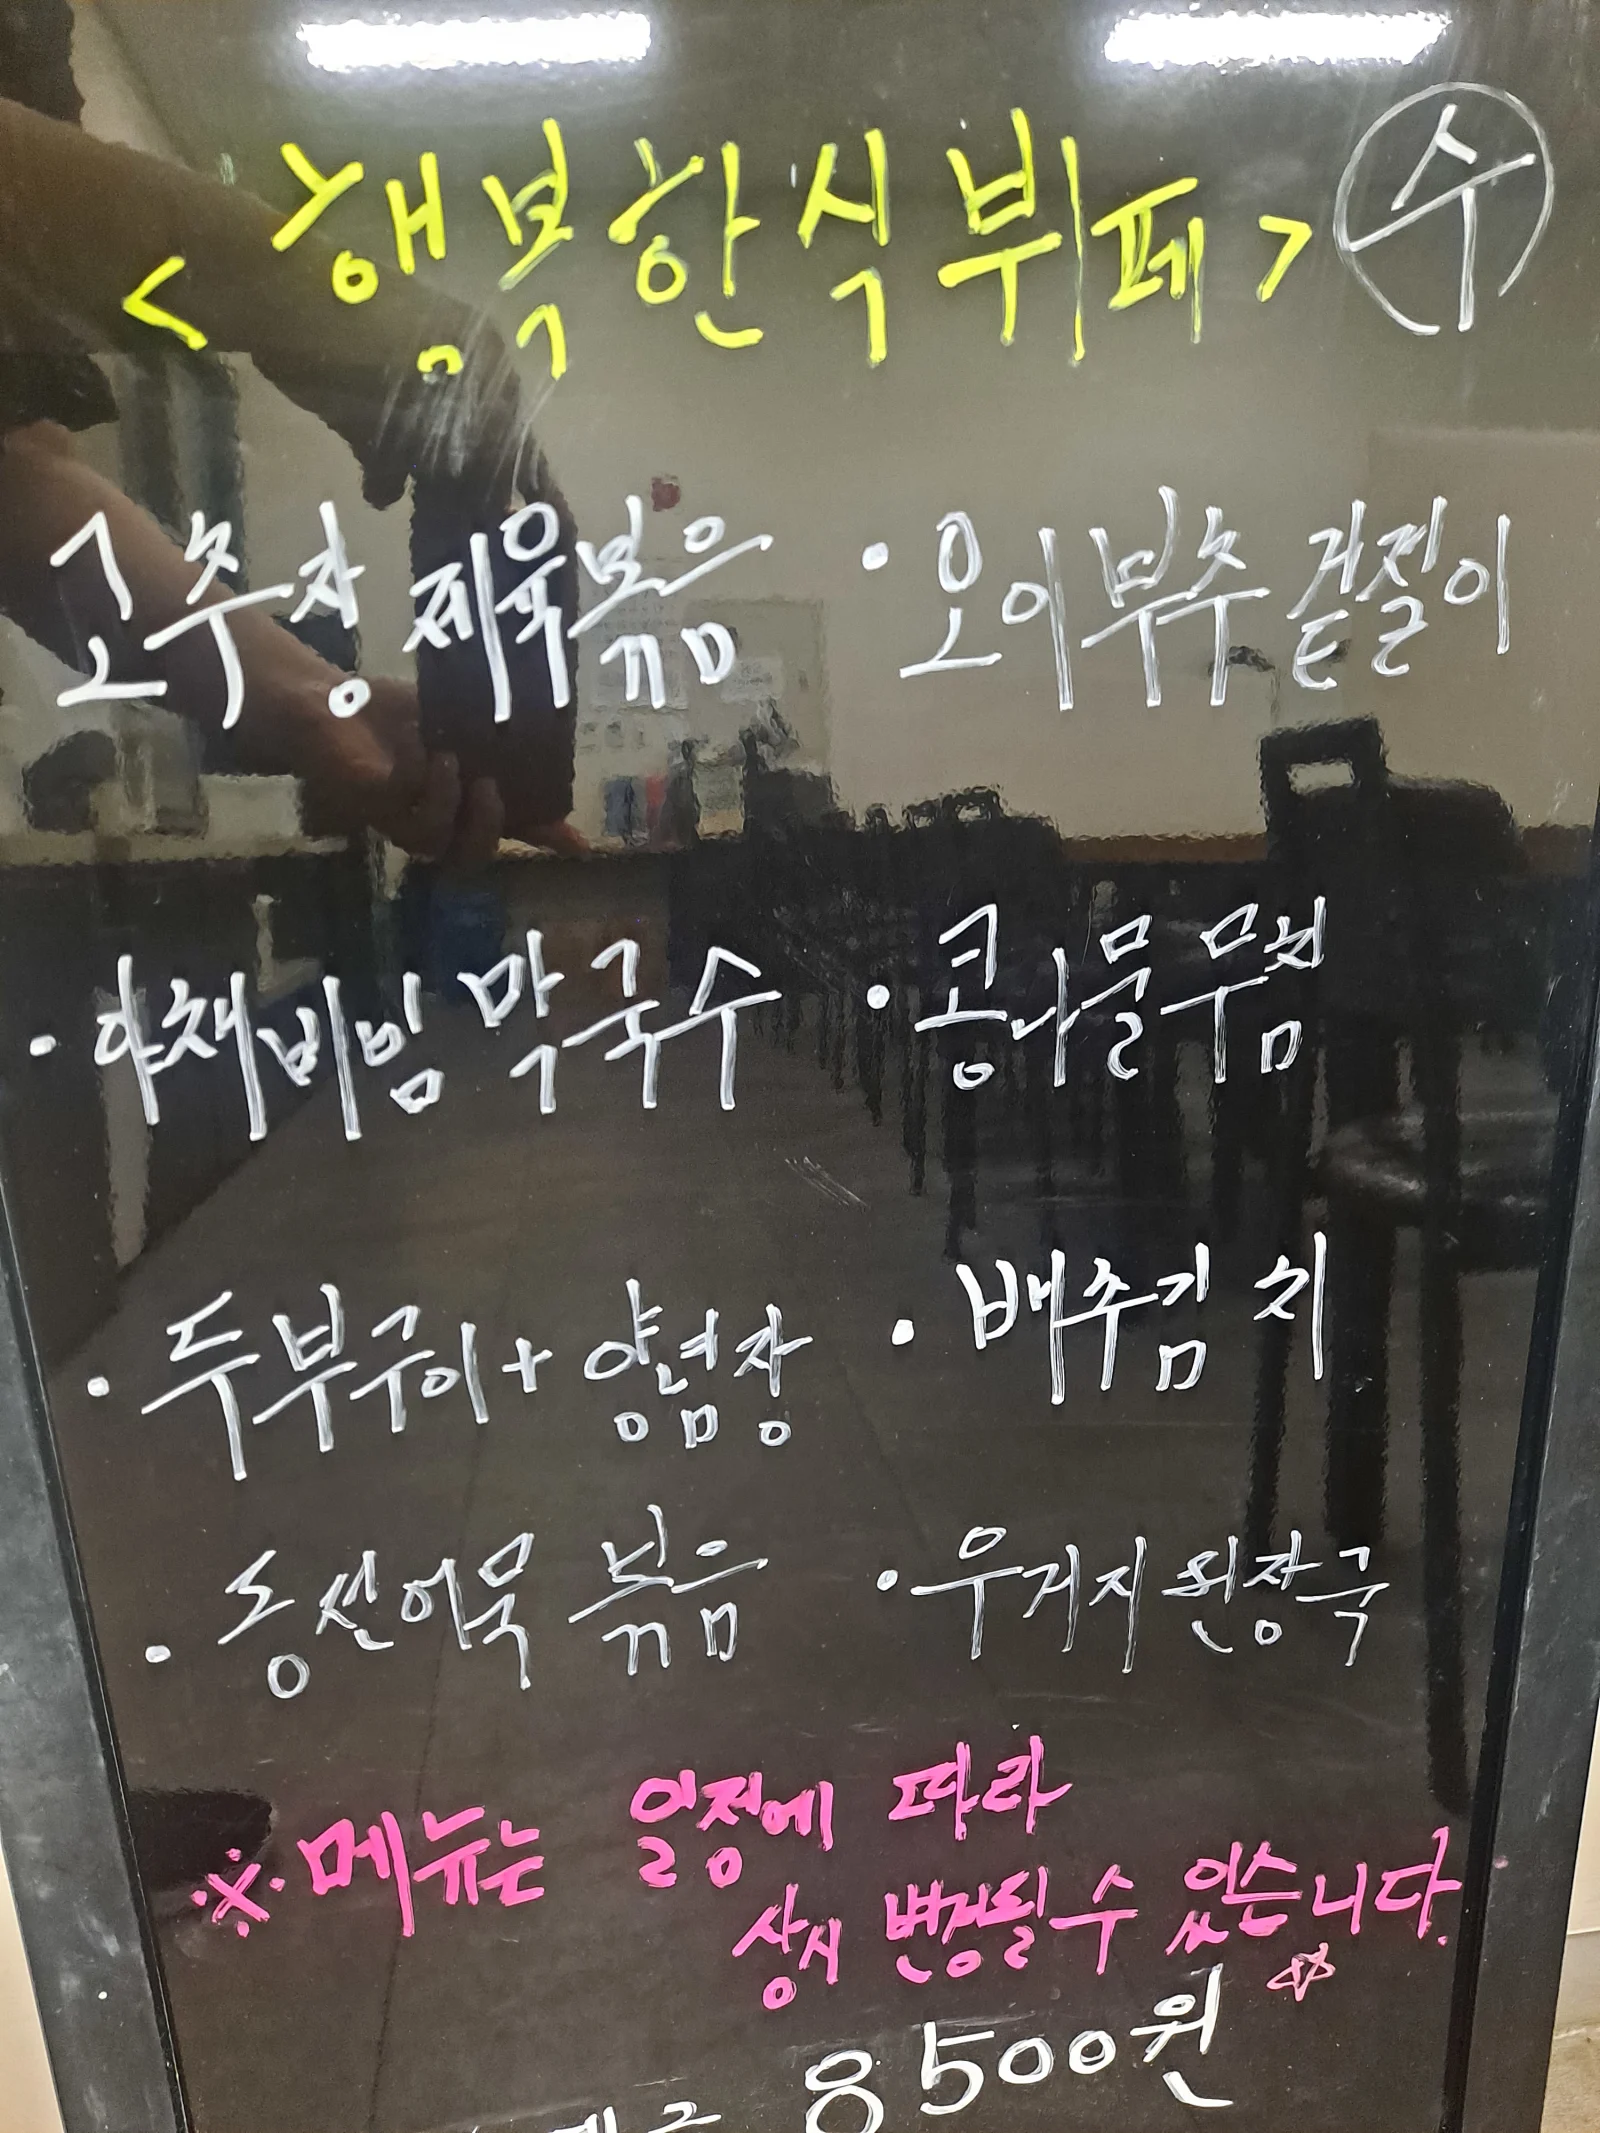 <행복한식뷔페> 수
고추장 제육볶음 · 오이부추 겉절이
· 야채비빔 막국수 · 콩나물무침
· 두부구이+양념장 · 배추김치
· 동선어묵 볶음 · 우거지 된장국
※메뉴는 일정에 따라
상시 변경될 수 있습니다.
8500원